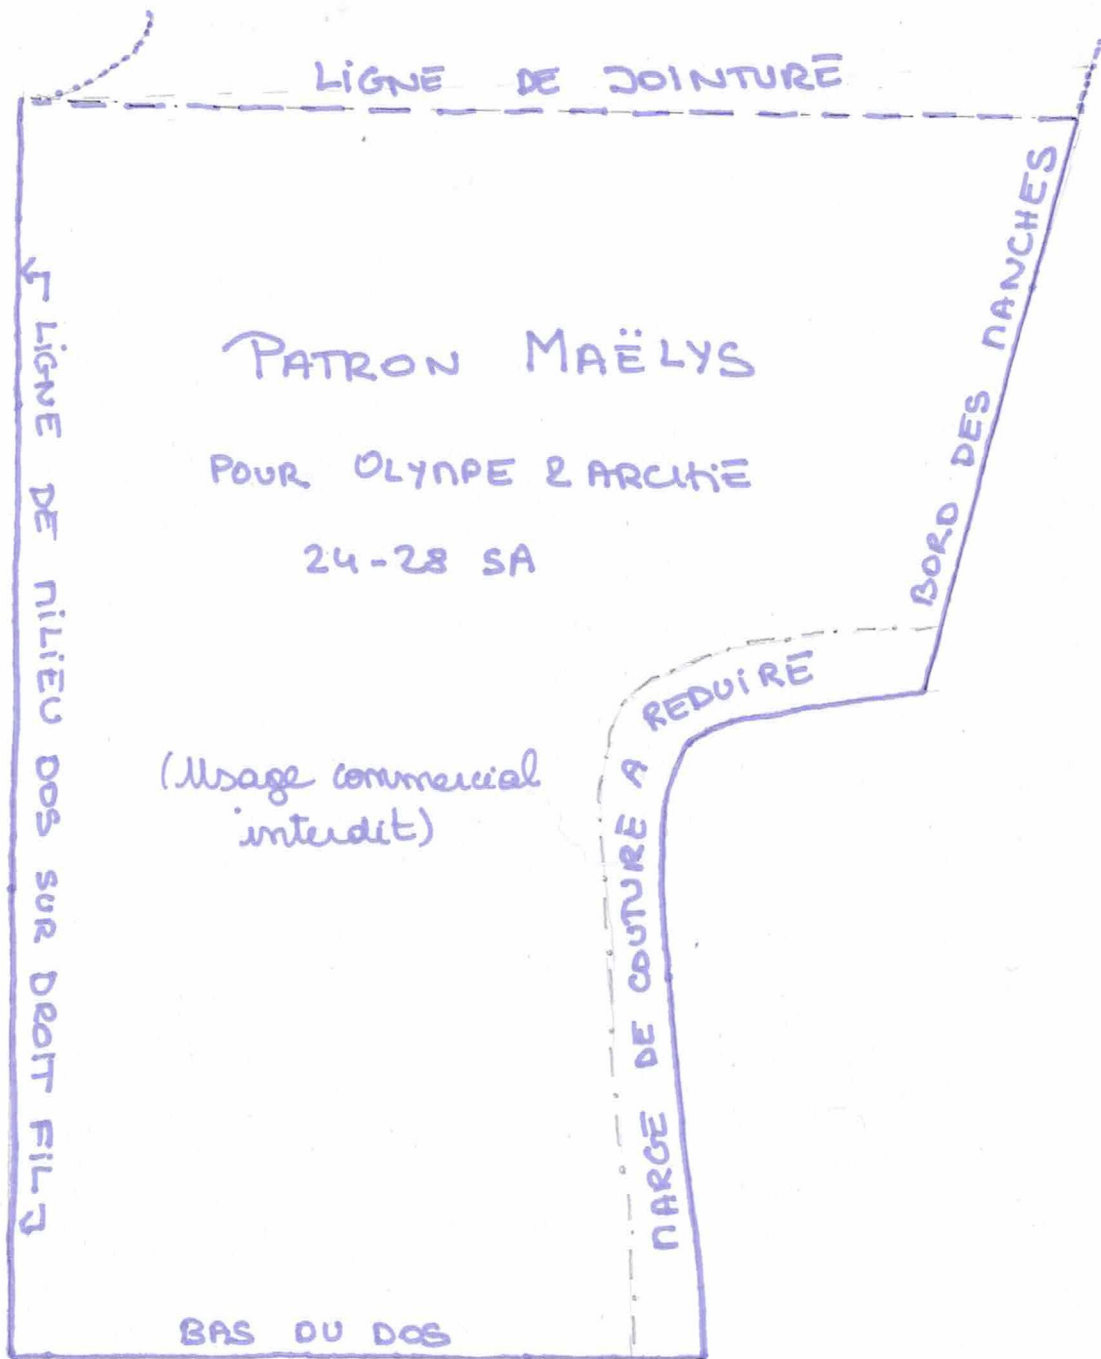 LIGNE DE JOINTURE
BORD DES MANCHES
LIGNE DE MILIEU DOS SUR DROIT FIL
PATRON MAËLYS
POUR OLYMPE & ARCHIE
24-28 SA
(Usage commercial
interdit)
MARGE DE COUTURE A REDUIRE
BAS DU DOS